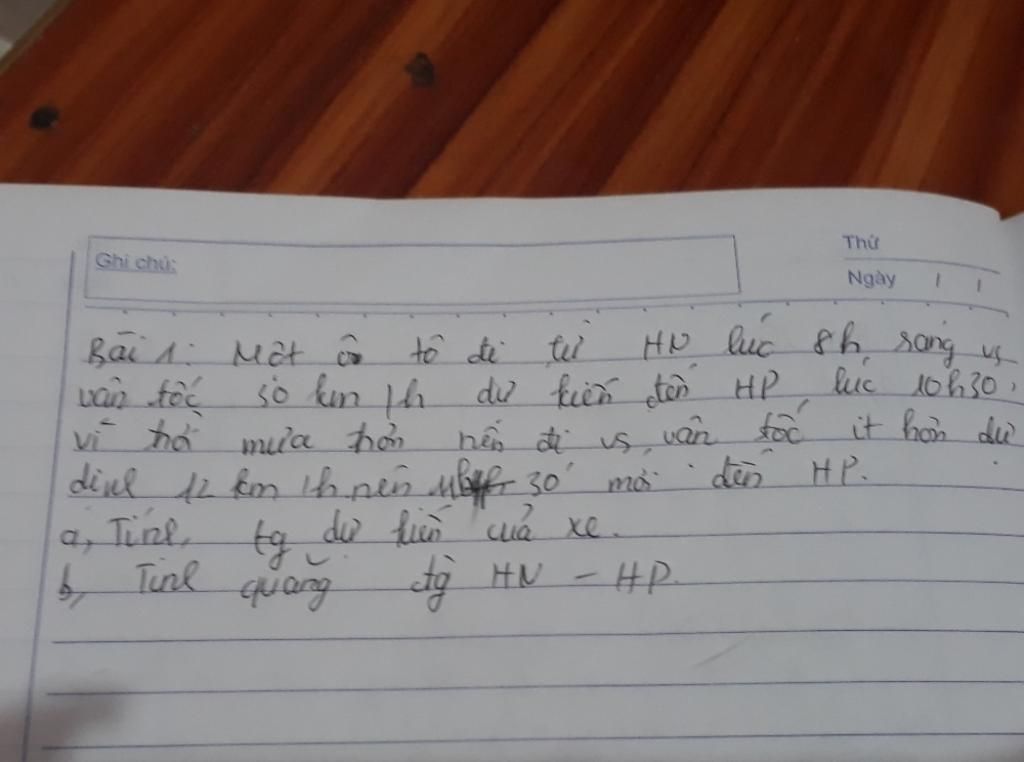 Ghi chú:
Thứ
Ngày / /
Bài 1: Một ô tô đi từ HN lúc 8h sáng vs
vân tốc 50 km/h dự kiến đến HP lúc 10h30,
vì trời mưa hơn nên đi vs vân tốc ít hơn dự
định 12 km/h nên 11h 30' mới đến HP.
a, Tính tg dự kiến của xe.
b, Tính quãng đg HN - HP.